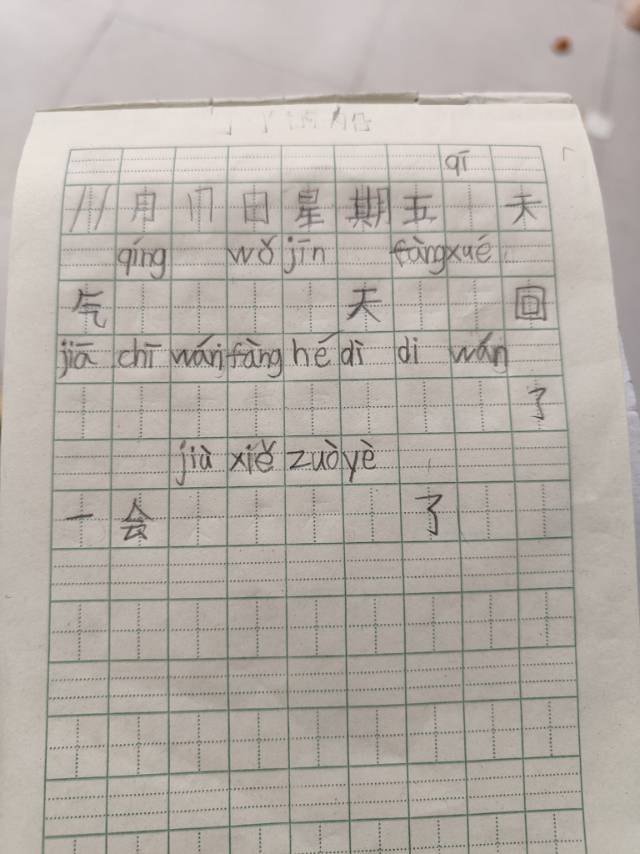 qī
11月17日星期五 天
qíng wǒ jīn fàng xué
气 天 回
jiā chī wán fàn hé dì di wán
了
jià xiě zuò yè
一会 了